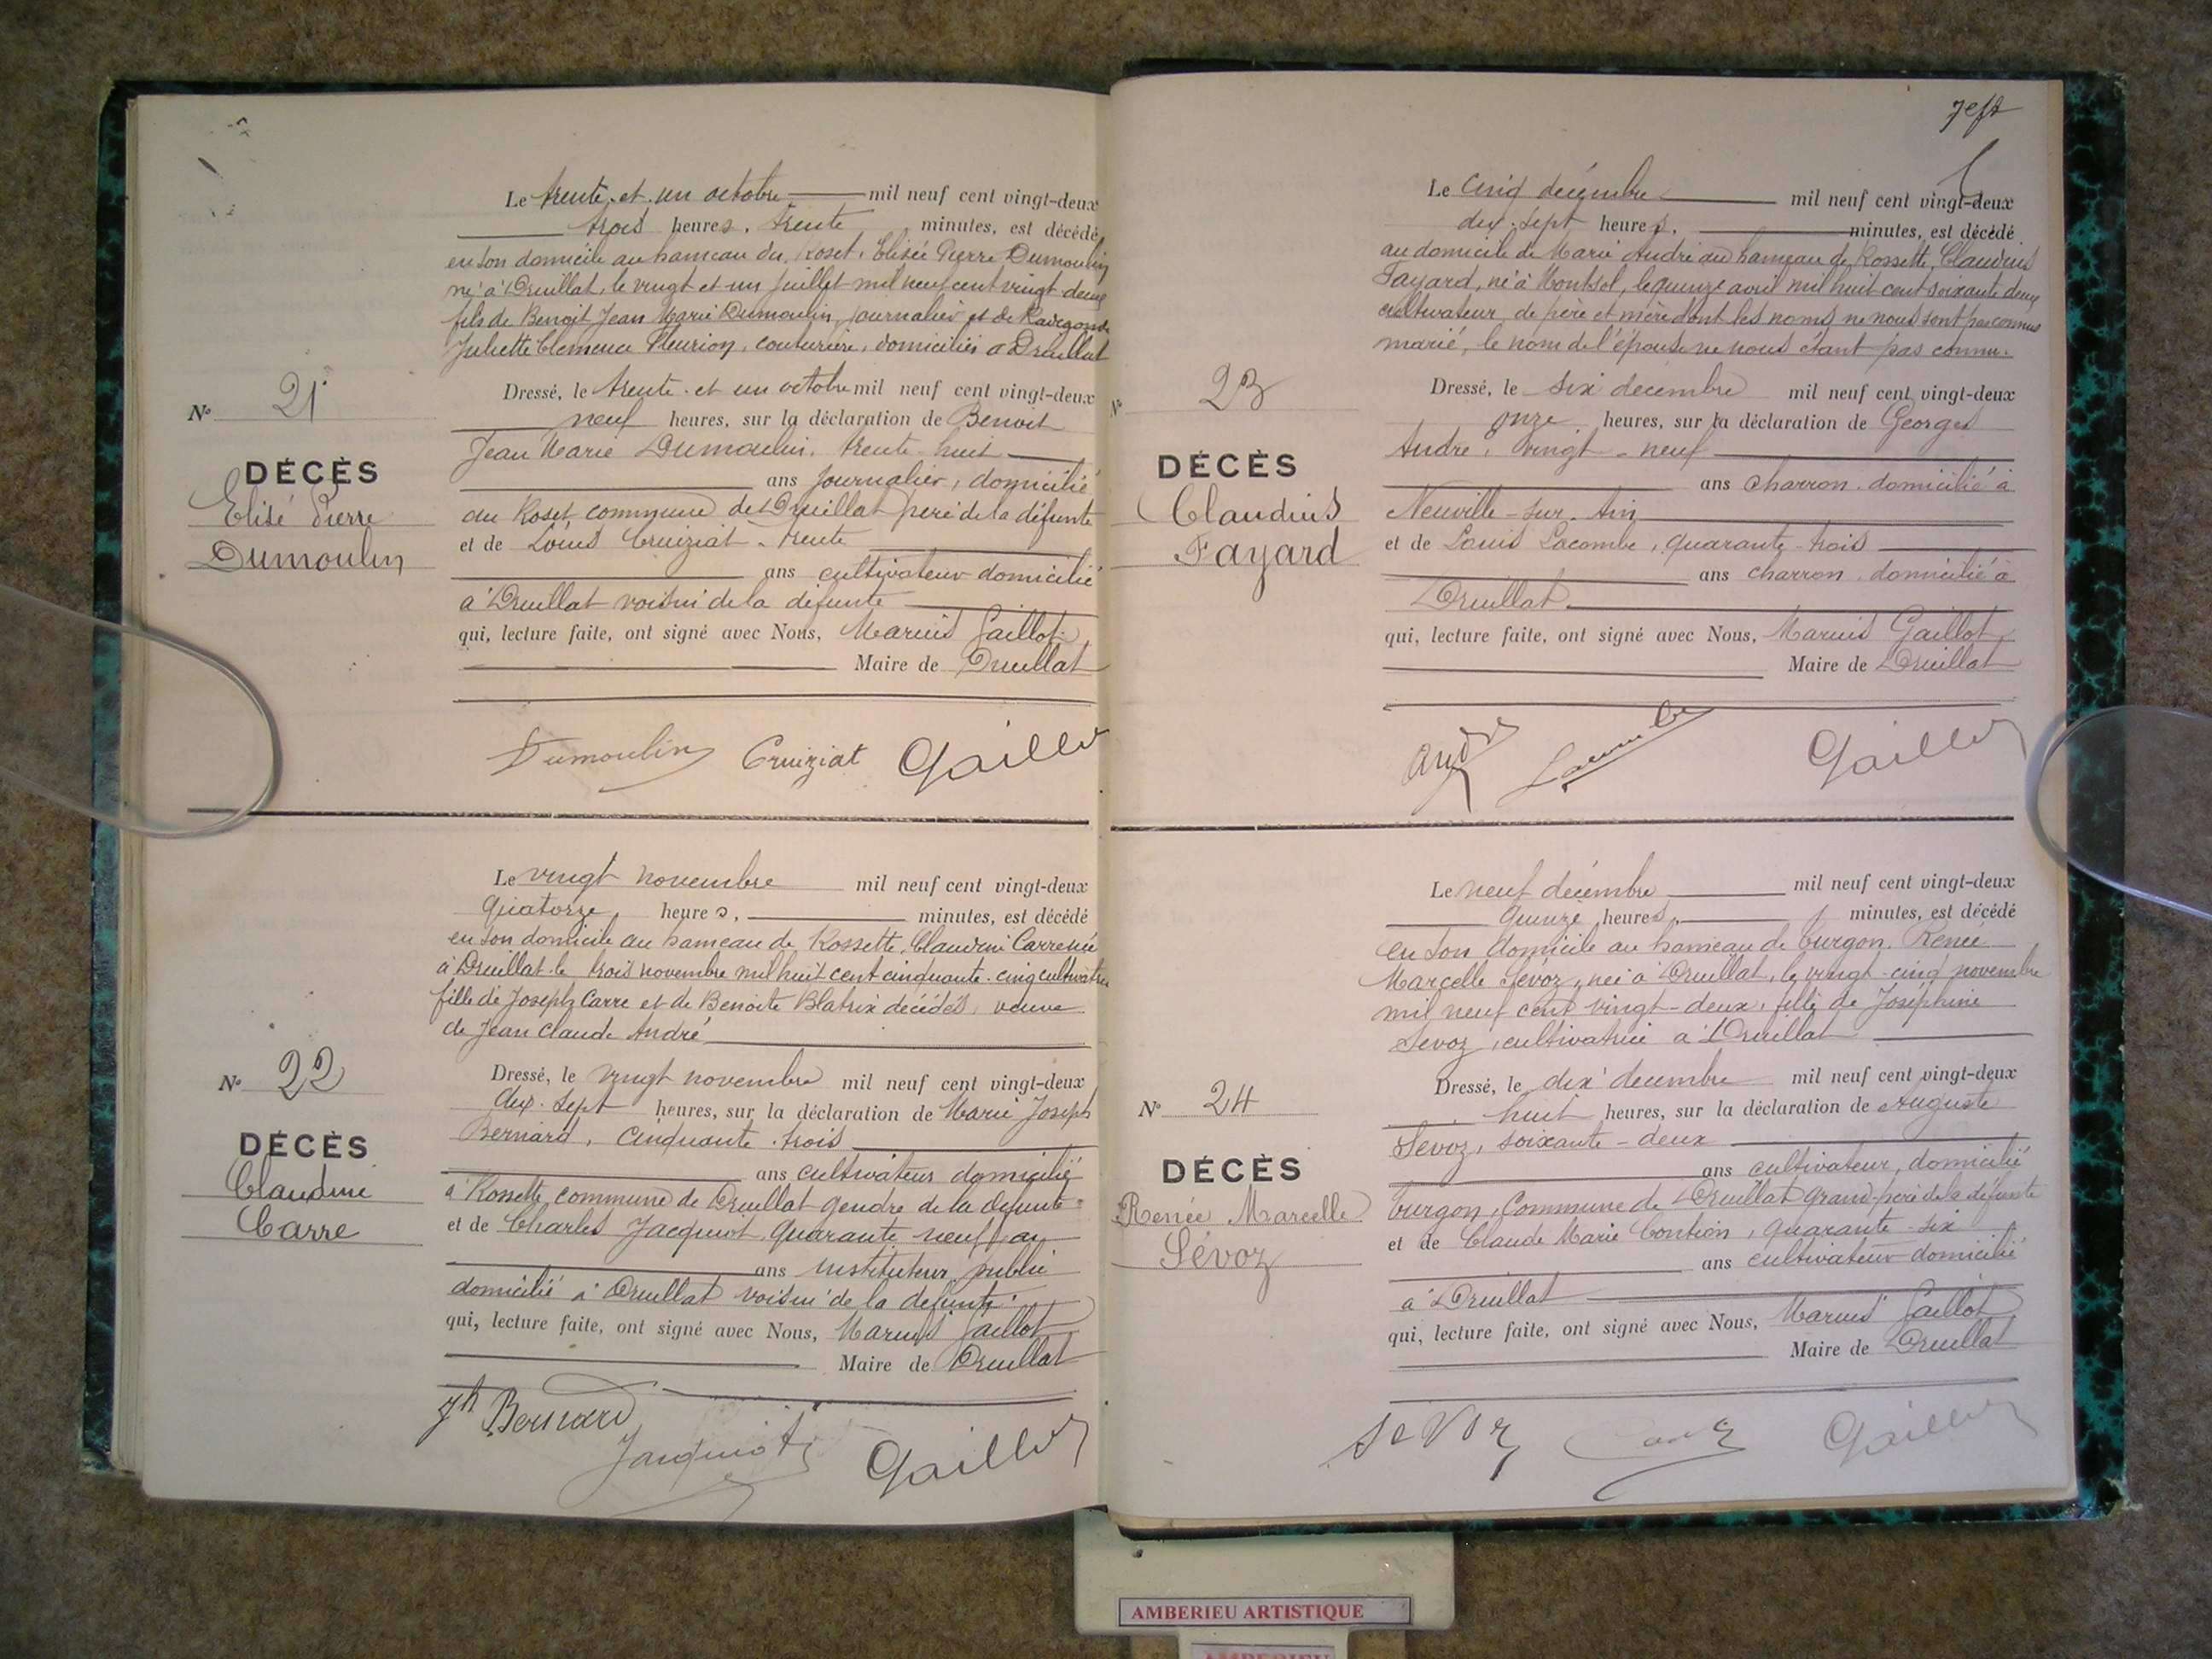 Le trente et un octobre mil neuf cent vingt-deux
trois heures, trente minutes, est décédé
en son domicile au hameau du Roset, Elisée Pierre Dumoulin
né à Druillat, le vingt et un juillet mil neuf cent vingt deux
fils de Benoit Jean Marie Dumoulin, journalier et de Radegonde
Juliette Clémence Fleurion, couturière, domiciliés à Druillat
Dressé, le trente et un octobre mil neuf cent vingt-deux
N° 21
neuf heures, sur la déclaration de Benoit
Jean Marie Dumoulin, trente huit
DÉCÈS
ans journalier, domicilié
Elisé Pierre
au Roset, commune de Druillat père de la défunte
Dumoulin
et de Louis Cruiziat, trente
ans cultivateur domicilié
à Druillat voisin de la défunte
qui, lecture faite, ont signé avec Nous, Marius Gaillot,
Maire de Druillat
Dumoulin Cruiziat Gaillot
Le vingt novembre mil neuf cent vingt-deux
quatorze heures, minutes, est décédé
en son domicile au hameau de Rossette, Claudine Carre née
à Druillat le trois novembre mil huit cent cinquante-cinq cultivatrice
fille de Joseph Carre et de Benoite Blatrix décédés, veuve
de Jean Claude André
Dressé, le vingt novembre mil neuf cent vingt-deux
N° 22
dix-sept heures, sur la déclaration de Marie Joseph
Bernard, cinquante-trois
DÉCÈS
ans cultivateur domicilié
Claudine
à Rossette, commune de Druillat gendre de la défunte
Carre
et de Charles Jacquiot, quarante neuf
ans instituteur public
domicilié à Druillat voisin de la défunte
qui, lecture faite, ont signé avec Nous, Marius Gaillot
Maire de Druillat
Jh Bernard
Jacquiot Gaillot
Le cinq décembre mil neuf cent vingt-deux
dix-sept heures, minutes, est décédé
au domicile de Marie André au hameau de Rossette, Claudius
Fayard, né à Montsol, le quinze avril mil huit cent soixante deux
cultivateur, de père et mère dont les noms ne nous sont pas connus
marié, le nom de l'épouse ne nous étant pas connu.
Dressé, le six décembre mil neuf cent vingt-deux
N° 23
onze heures, sur la déclaration de Georges
André, vingt-neuf
DÉCÈS
ans charron domicilié à
Claudius
Neuville-sur-Ain
Fayard
et de Louis Lacombe, quarante-trois
ans charron, domicilié à
Druillat
qui, lecture faite, ont signé avec Nous, Marius Gaillot,
Maire de Druillat
André Lacombe Gaillot
Le neuf décembre mil neuf cent vingt-deux
quinze heures, minutes, est décédé
en son domicile au hameau de Turgon, Renée
Marcelle Sévoz, née à Druillat, le vingt-cinq novembre
mil neuf cent vingt-deux, fille de Joséphine
Sévoz, cultivatrice à Druillat
Dressé, le dix décembre mil neuf cent vingt-deux
N° 24
huit heures, sur la déclaration de Auguste
Sévoz, soixante-deux
DÉCÈS
ans cultivateur, domicilié
Renée Marcelle
Turgon, Commune de Druillat grand-père de la défunte
Sévoz
et de Claude Marie, quarante-six
ans cultivateur domicilié
à Druillat
qui, lecture faite, ont signé avec Nous, Marius Gaillot
Maire de Druillat
Sevoz Gaillot
AMBERIEU ARTISTIQUE
AMBERIEU